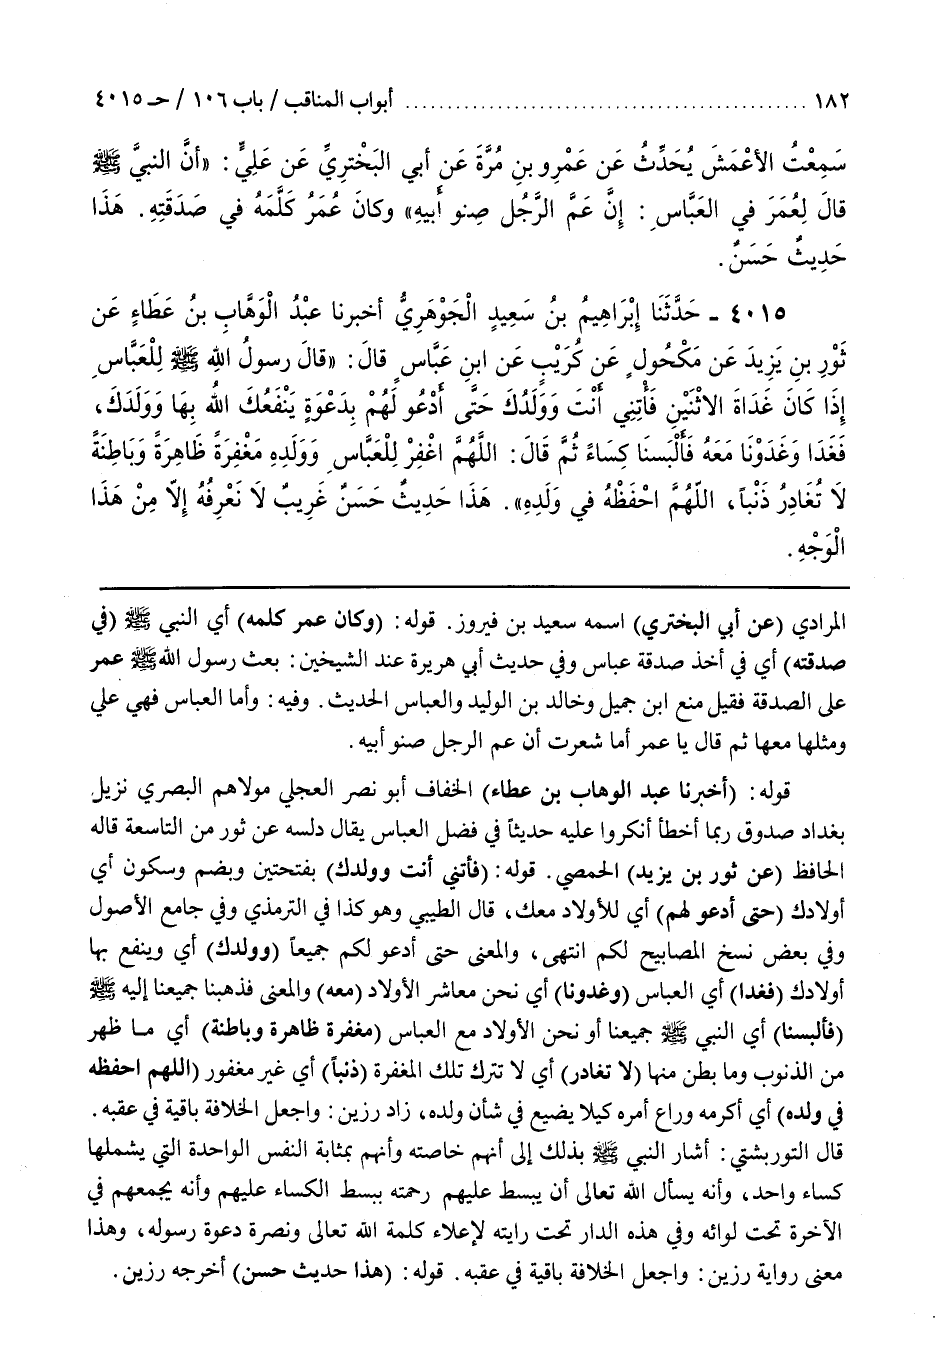 ١٨٢ ................................................ أبواب المناقب / باب ١٠٦ / حـ ٤٠١٥
سَمِعْتُ الأعْمَشَ يُحَدِّثُ عَن عَمْرِو بنِ مُرَّةَ عَن أبي البَخْتريِّ عَن عَلِيٍّ: «أنَّ النبيَّ ﷺ
قالَ لِعُمَرَ في العَبَّاسِ: إنَّ عَمَّ الرَّجُلِ صِنو أَبيهِ» وكانَ عُمَرُ كَلَّمَهُ في صَدَقَتِهِ. هَذَا
حَدِيثٌ حَسَنٌ.
٤٠١٥ - حَدَّثَنَا إبْرَاهِيمُ بنُ سَعِيدٍ الْجَوْهَرِيُّ أخبرنا عبْدُ الْوَهَّابِ بنُ عَطَاءٍ عَن
ثَوْرِ بنِ يَزِيدَ عَن مَكْحُولٍ عَن كُرَيْبٍ عَن ابنِ عَبَّاسٍ قالَ: «قالَ رسولُ الله ﷺ لِلْعَبَّاسِ
إذَا كَانَ غَدَاةَ الاثْنَيْنِ فَأْتِنِي أنْتَ وَوَلَدُكَ حَتَّى أَدْعُو لَهُمْ بِدَعْوَةٍ يَنْفَعُكَ اللهُ بِهَا وَوَلَدَكَ،
فَغَدَا وَغَدَوْنَا مَعَهُ فَأَلْبَسنَا كِسَاءً ثُمَّ قَالَ: اللَّهُمَّ اغْفِرْ لِلْعَبَّاسِ وَوَلَدِهِ مَغْفِرَةً ظَاهِرَةً وَبَاطِنَةً
لا تُغَادِرُ ذَنْباً، اللّهُمَّ احْفَظْهُ في وَلَدِهِ». هَذَا حَدِيثٌ حَسَنٌ غَرِيبٌ لا نَعْرِفُهُ إلاّ مِنْ هَذَا
الْوَجْهِ.
المرادي (عن أبي البختري) اسمه سعيد بن فيروز. قوله: (وكان عمر كلمه) أي النبي ﷺ (في
صدقته) أي في أخذ صدقة عباس وفي حديث أبي هريرة عند الشيخين: بعث رسول الله ﷺ عمر
على الصدقة فقيل منع ابن جميل وخالد بن الوليد والعباس الحديث. وفيه: وأما العباس فهي علي
ومثلها معها ثم قال يا عمر أما شعرت أن عم الرجل صنو أبيه.
قوله: (أخبرنا عبد الوهاب بن عطاء) الخفاف أبو نصر العجلي مولاهم البصري نزيل
بغداد صدوق ربما أخطأ أنكروا عليه حديثاً في فضل العباس يقال دلسه عن ثور من التاسعة قاله
الحافظ (عن ثور بن يزيد) الحمصي. قوله: (فأتني أنت وولدك) بفتحتين وبضم وسكون أي
أولادك (حتى أدعو لهم) أي للأولاد معك، قال الطيبي وهو كذا في الترمذي وفي جامع الأصول
وفي بعض نسخ المصابيح لكم انتهى، والمعنى حتى أدعو لكم جميعاً (وولدك) أي وينفع بها
أولادك (فغدا) أي العباس (وغدونا) أي نحن معاشر الأولاد (معه) والمعنى فذهبنا جميعنا إليه ﷺ
(فألبسنا) أي النبي ﷺ جميعنا أو نحن الأولاد مع العباس (مغفرة ظاهرة وباطنة) أي ما ظهر
من الذنوب وما بطن منها (لا تغادر) أي لا تترك تلك المغفرة (ذنباً) أي غير مغفور (اللهم احفظه
في ولده) أي أكرمه وراع أمره كيلا يضيع في شأن ولده، زاد رزين: واجعل الخلافة باقية في عقبه.
قال التوربشتي: أشار النبي ﷺ بذلك إلى أنهم خاصته وأنهم بمثابة النفس الواحدة التي يشملها
كساء واحد، وأنه يسأل الله تعالى أن يبسط عليهم رحمته ببسط الكساء عليهم وأنه يجمعهم في
الآخرة تحت لوائه وفي هذه الدار تحت رايته لإعلاء كلمة الله تعالى ونصرة دعوة رسوله، وهذا
معنى رواية رزين: واجعل الخلافة باقية في عقبه. قوله: (هذا حديث حسن) أخرجه رزين.